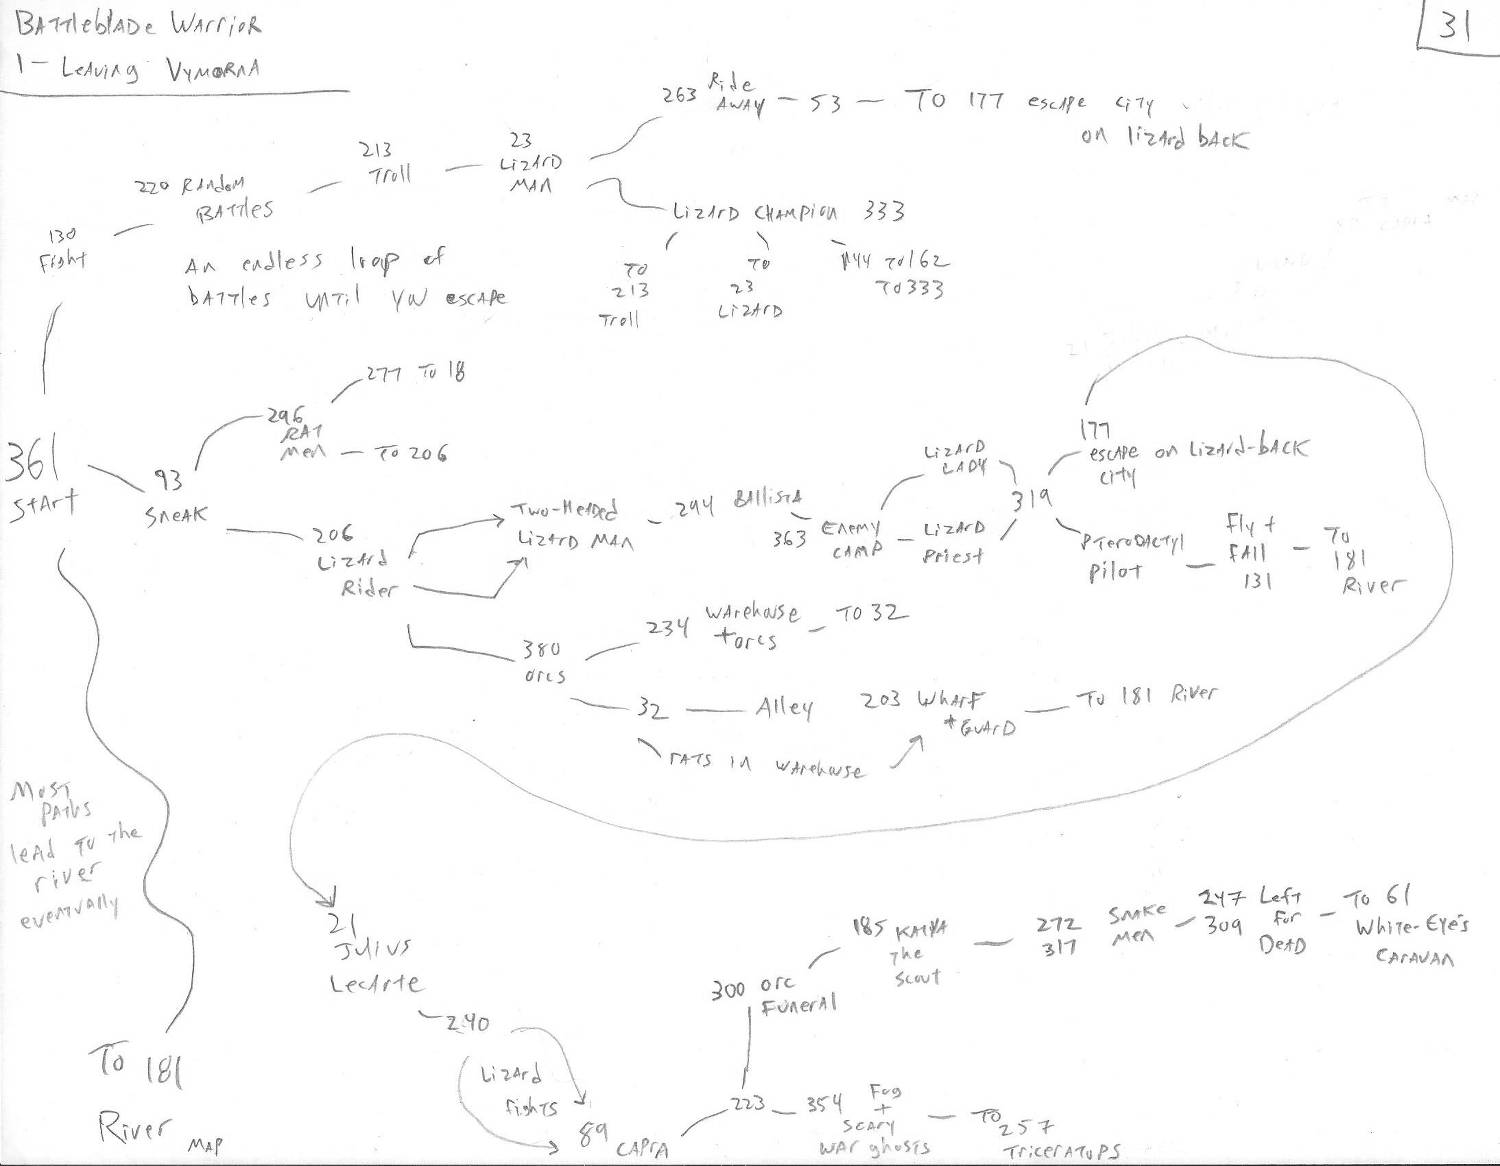 BATTleblADE WArrioR
31
1 - LeAving VymoRnA
263 Ride
AWAY - 53 - TO 177 escApe ciTy
on lizArd bAcK
213
Troll
23
LizArD
MAn
220 RAndom
BATTles
LizArD CHAmpion 333
130
FigHt
An endless loop of
bATTles unTil you escApe
TO
213
Troll
TO
23
LizArD
144 TO 162
TO 333
277 To 18
296
RAT
Men - TO 206
361
StArt
93
SneAK
206
LizArd
Rider
Two-HeAded
LizArD MAn
294 BAllisTA
363 Enemy
CAmp
LizArD
LADY
LizArD
Priest
319
177
escApe on LizArd-bAcK
ciTy
PTeroDAcTyl
Pilot
Fly +
FAll
131
To
181
River
380
orcs
234 WArehouse
+ orcs
TO 32
32
Alley
203 WHArF
+ GuArD
To 181 River
rATs in wArehouse
MosT
PATHs
leAd To The
river
evenTuAlly
21
Julius
LecArte
240
LizArd
fighTs
89 CAprA
To 181
River MAp
300 orc
FunerAl
185 KATYA
The
Scout
272
317
SnAKe
Men
247
309
Left
For
DeAD
To 61
WHite-Eye's
CArAvAn
223
354 Fog
+
ScAry
WAr ghosts
To
257
TricerATops